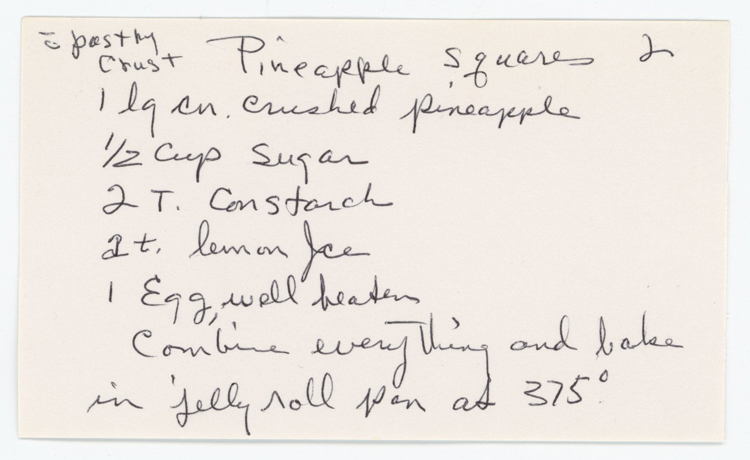 c̄ pastry
Crust
Pineapple Squares 2
1 lg cn. crushed pineapple
1/2 Cup Sugar
2 T. Constarch
2 t. lemon Jce
1 Egg, well beaten
Combine everything and bake
in jelly roll pan at 375°.